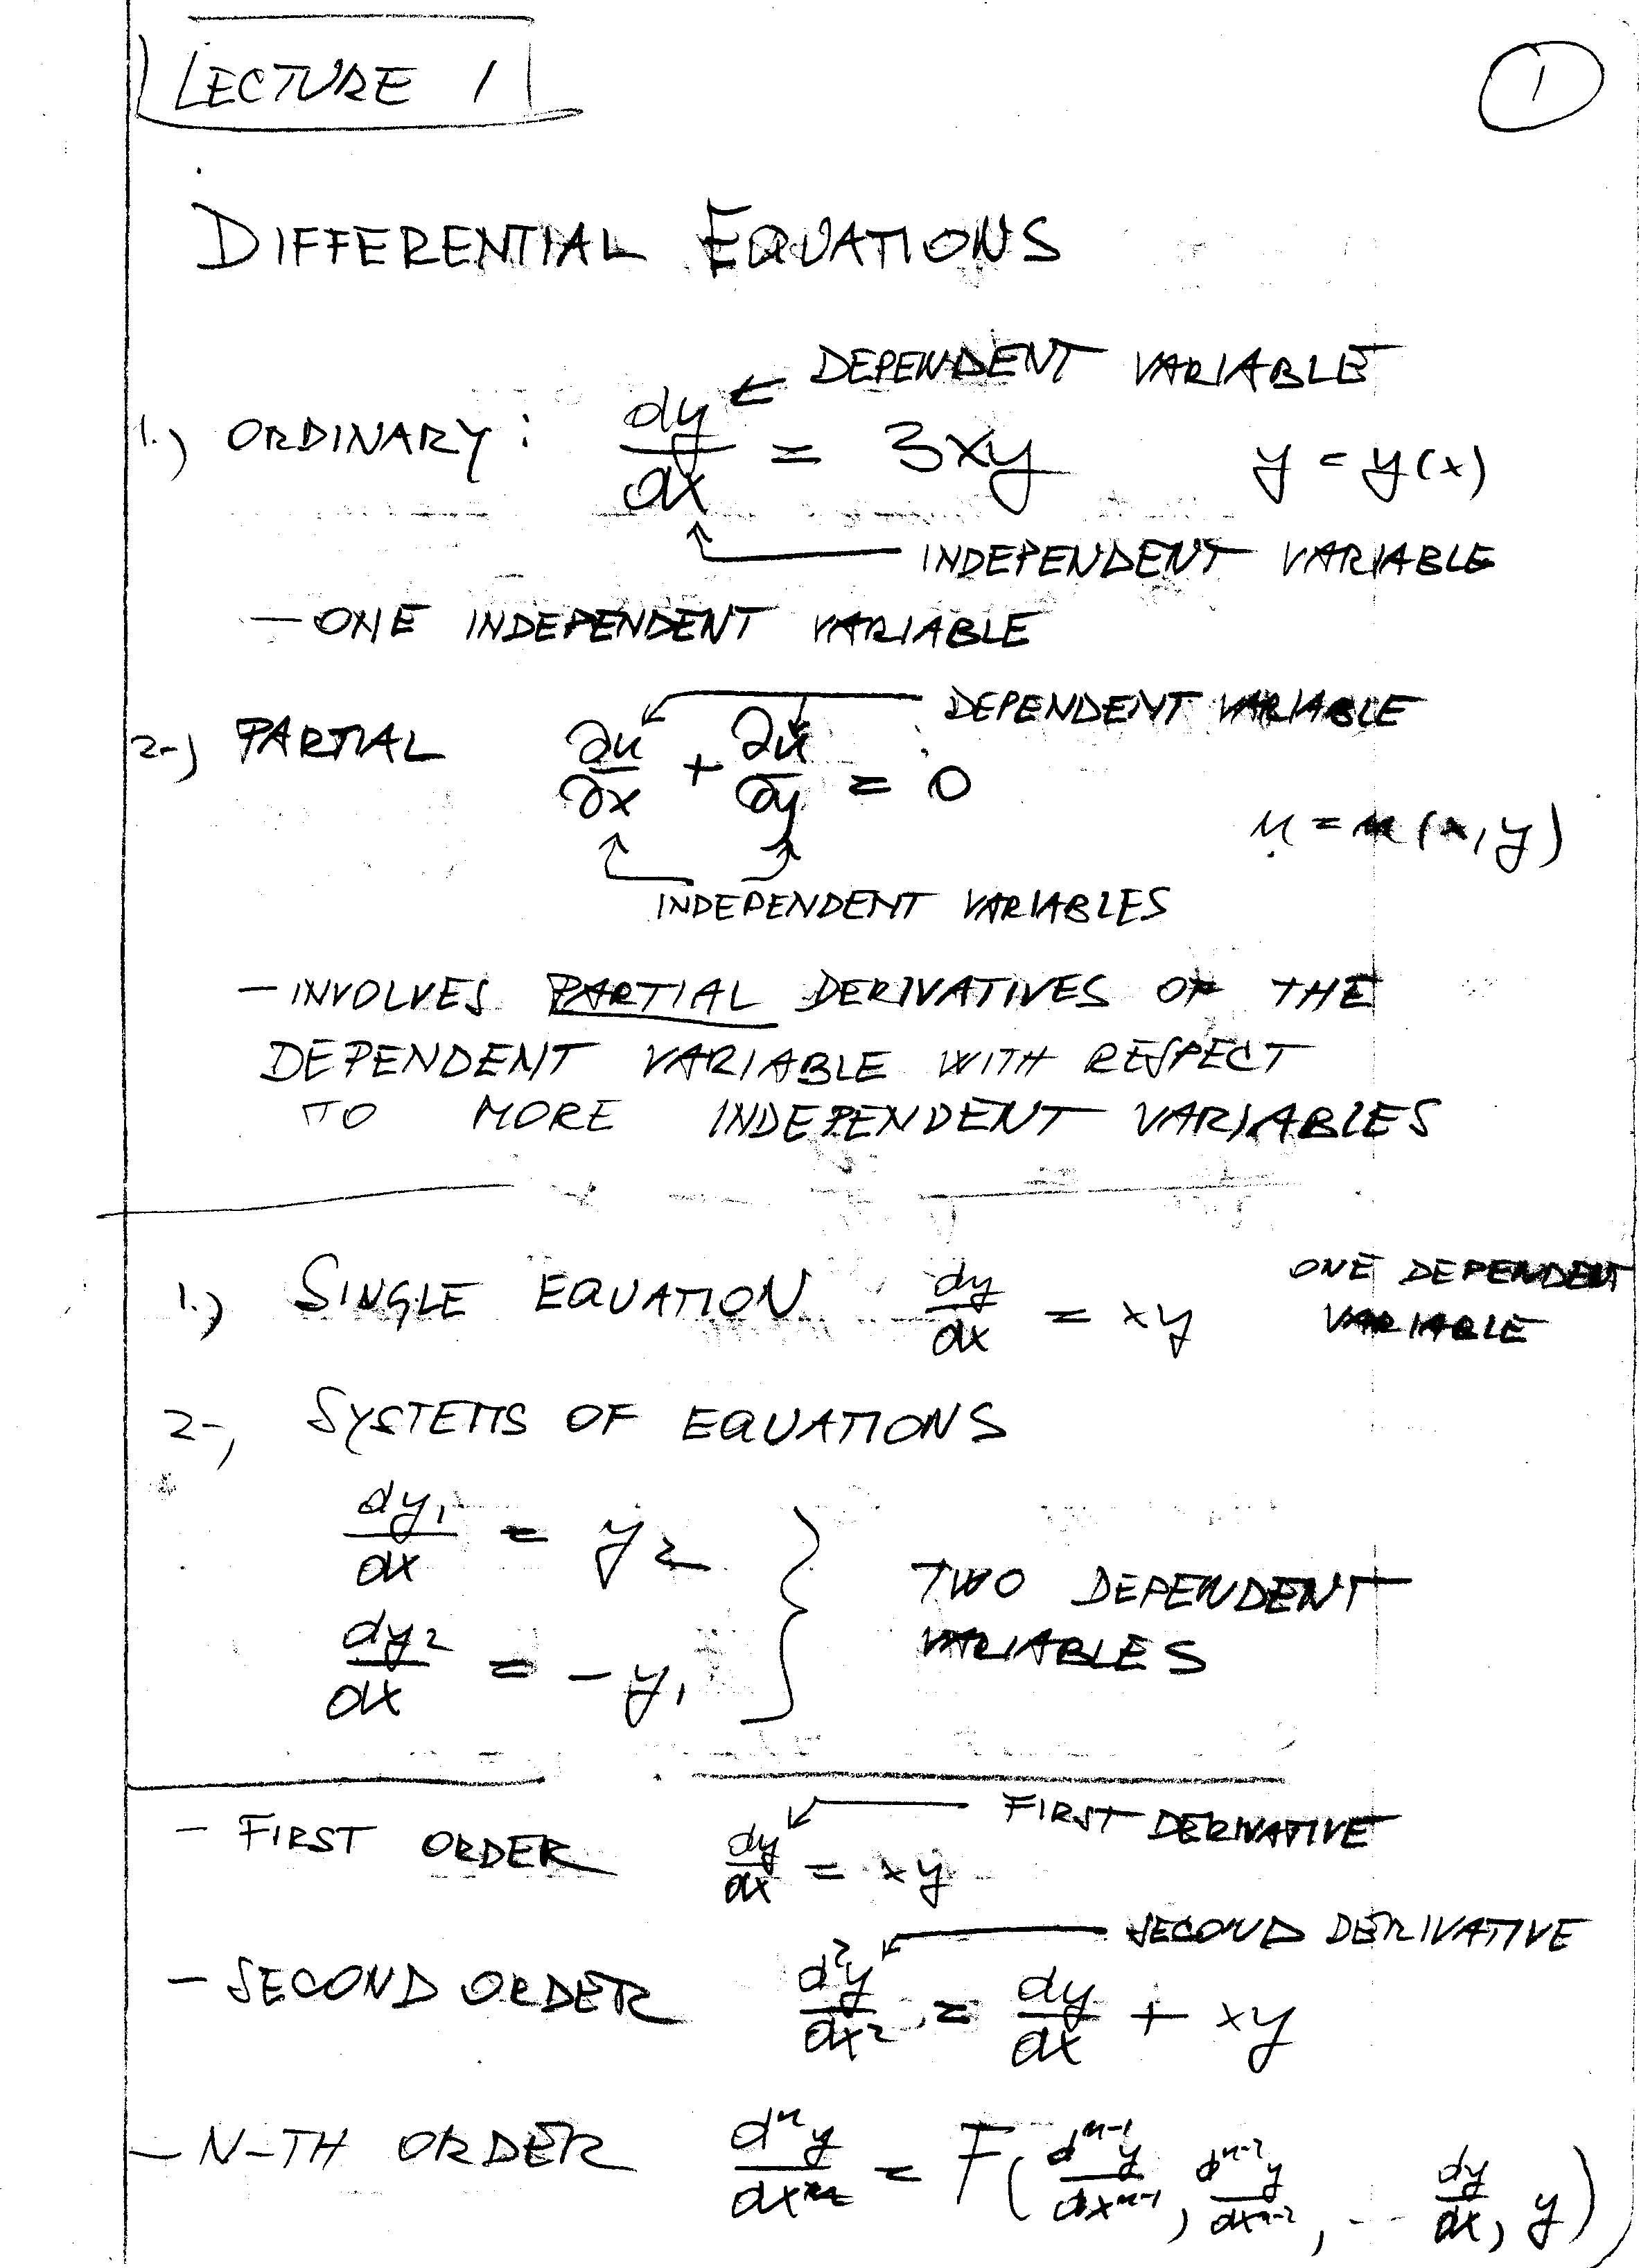 LECTURE 1
1
DIFFERENTIAL EQUATIONS
← DEPENDENT VARIABLE
1.) ORDINARY: dy/dx = 3xy y = y(x)
INDEPENDENT VARIABLE
- ONE INDEPENDENT VARIABLE
DEPENDENT VARIABLE
2.) PARTIAL ∂u/∂x + ∂u/∂y = 0
u = u(x,y)
INDEPENDENT VARIABLES
- INVOLVES PARTIAL DERIVATIVES OF THE
DEPENDENT VARIABLE WITH RESPECT
TO MORE INDEPENDENT VARIABLES
1.) SINGLE EQUATION dy/dx = xy ONE DEPENDENT
VARIABLE
2.) SYSTEMS OF EQUATIONS
dy₁/dx = y₂
dy₂/dx = -y₁
} TWO DEPENDENT
VARIABLES
- FIRST ORDER dy/dx = xy FIRST DERIVATIVE
SECOND DERIVATIVE
- SECOND ORDER d²y/dx² = dy/dx + xy
- N-TH ORDER dⁿy/dxⁿ = F(dⁿ⁻¹y/dxⁿ⁻¹, dⁿ⁻²y/dxⁿ⁻², ... dy/dx, y)